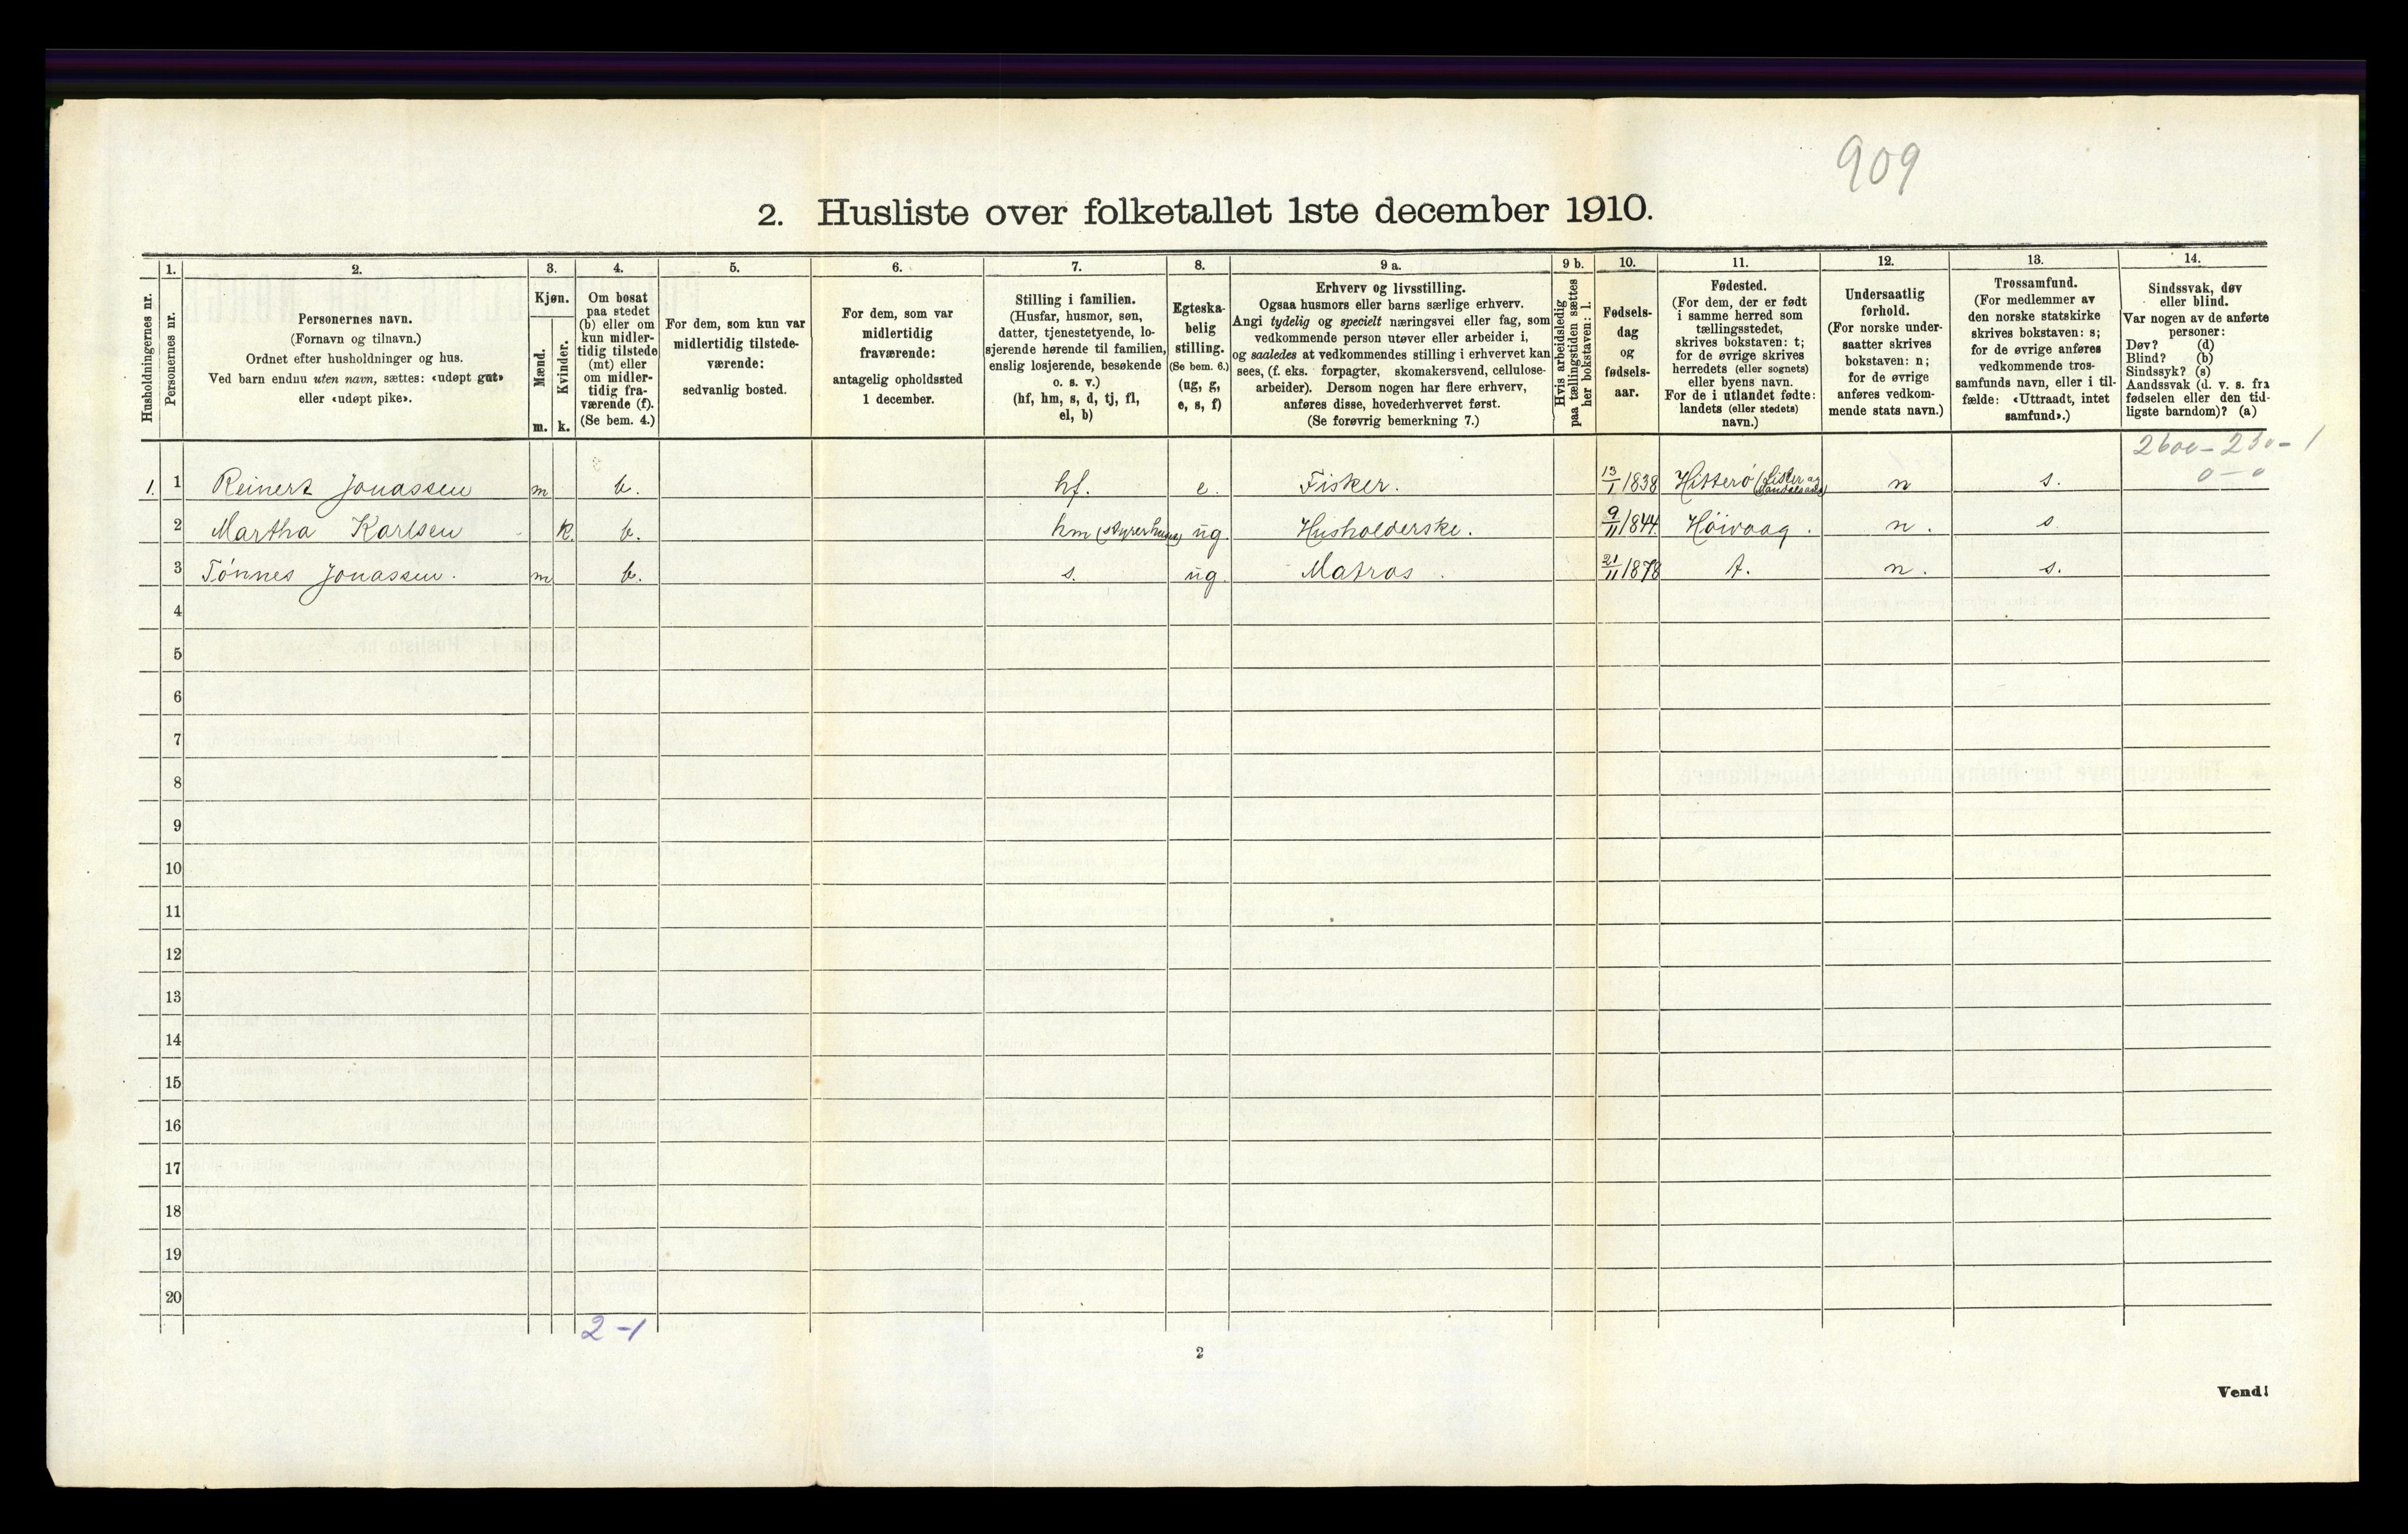 909
2. Husliste over folketallet 1ste december 1910.
Husholdningernes nr.
1.
Personernes nr.
2.
Personernes navn.
(Fornavn og tilnavn.)
Ordnet efter husholdninger og hus.
Ved barn endnu uten navn, sættes: «udøpt gut»
eller «udøpt pike».
3.
Kjøn.
Mænd.
Kvinder.
m.
k.
4.
Om bosat
paa stedet
(b) eller om
kun midler-
tidig tilstede
(mt) eller
om midler-
tidig fra-
værende (f).
(Se bem. 4.)
5.
For dem, som kun var
midlertidig tilstede-
værende:
sedvanlig bosted.
6.
For dem, som var
midlertidig
fraværende:
antagelig opholdssted
1 december.
7.
Stilling i familien.
(Husfar, husmor, søn,
datter, tjenestetyende, lo-
sjerende hørende til familien,
enslig losjerende, besøkende
o. s. v.)
(hf, hm, s, d, tj, fl,
el, b)
8.
Egteska-
belig
stilling.
(Se bem. 6.)
(ug, g,
e, s, f)
9 a.
Erhverv og livsstilling.
Ogsaa husmors eller barns særlige erhverv.
Angi tydelig og specielt næringsvei eller fag, som
vedkommende person utøver eller arbeider i,
og saaledes at vedkommendes stilling i erhvervet kan
sees, (f. eks. forpagter, skomakersvend, cellulose-
arbeider). Dersom nogen har flere erhverv,
anføres disse, hovederhvervet først.
(Se forøvrig bemerkning 7.)
9 b.
Hvis arbeidsledig
paa tællingstiden sættes
her bokstaven: l.
10.
Fødsels-
dag
og
fødsels-
aar.
11.
Fødested.
(For dem, der er født
i samme herred som
tællingsstedet,
skrives bokstaven: t;
for de øvrige skrives
herredets (eller sognets)
eller byens navn.
For de i utlandet fødte:
landets (eller stedets)
navn.)
12.
Undersaatlig
forhold.
(For norske under-
saatter skrives
bokstaven: n;
for de øvrige
anføres vedkom-
mende stats navn.)
13.
Trossamfund.
(For medlemmer av
den norske statskirke
skrives bokstaven: s;
for de øvrige anføres
vedkommende tros-
samfunds navn, eller i til-
fælde: «Uttraadt, intet
samfund».)
14.
Sindssvak, døv
eller blind.
Var nogen av de anførte
personer:
Døv? (d)
Blind? (b)
Sindssyk? (s)
Aandssvak (d. v. s. fra
fødselen eller den tid-
ligste barndom)? (a)
2600 - 230 - 1
0 - 0
1. 1 Reinert Jonassen m b. hf. e. Fisker. 13/1 1838 Hitterö (Lister og Mandals amt) n s.
2 Martha Karlsen k. b. hm (styrerhuset) ug. Husholderske. 9/11 1844 Höivaag. n. s
3 Tönnes Jonassen. m b. s. ug. Matros. 21/11 1878 t. n. s.
4
5
6
7
8
9
10
11
12
13
14
15
16
17
18
19
20
2-1
2
Vend!